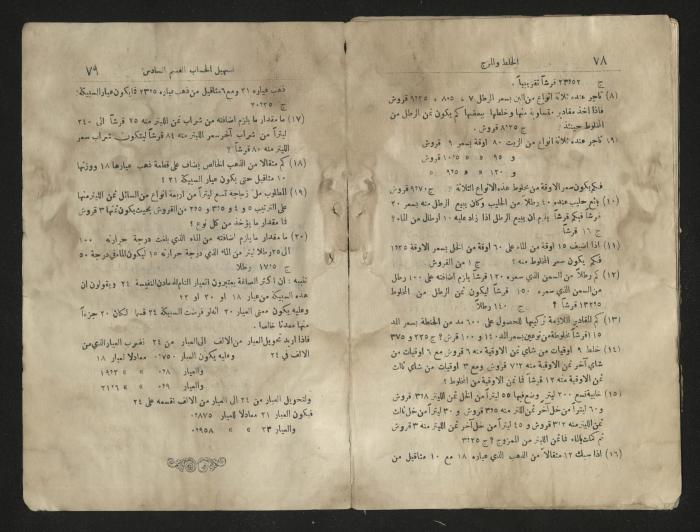 ٧٨
الخلط والمزج
ج ٢٣٦٥٢ قرشاً تقريبياً .
(٨) تاجر عنده ثلاثة انواع من البن بسعر الرطل ٧ ، ٨٥ ، ٩٢٥ قروش
فاذا اخذ مقادير متساوية منها وخلطها ببعضها كم يكون ثمن الرطل من
المخلوط حينئذ ؛ ج ٨٢٥ قروش .
(٩) تاجر عنده ثلاثة انواع من الزيت ٨٠ اوقة بسعر ٩ قروش
و ٩٥ » ١٠٥ قروش
و ١٢٠ » ٩٢٥ »
فبكم يكون سعر الاوقة من مخلوط هذه الانواع الثلاثة ؟ ج ٩٦٧٠ قروش
(١٠) بائع حليب عنده ٤٠ رطلاً من الحليب وكان يبيع الرطل منه بسعر ٢٠
قرشاً فبكم قرشاً يلزم ان يبيع الرطل اذا زاد عليه ١٠ ارطال من الماء ؟
ج ١٦ قرشاً
(١١) اذا اضيف ١٥ اوقة من الماء على ٦٠ اوقة من الخل بسعر الاوقة ١٢٥
فبكم يكون سعر المخلوط منه ؟ ج ١ من القروش
(١٢) كم رطلاً من السمن الذي سعره ١٢٠ قرشاً يلزم اضافته على ١٠٠ رطل
من السمن الذي سعره ١٥٠ قرشاً ليكون ثمن الرطل من المخلوط
١٣٢٥ قرشاً ؟ ج ١٤٠ رطلاً
(١٣) كم المقادير اللازمة تركيبها للحصول على ٦٠٠ مد من الحنطة بسعر المد
١٥ قرشاً مخلوطة من نوعين بسعر المد ١٤٠ و ١٠٠ قرش ؟ ج ٢٢٥ و ٣٧٥
(١٤) خلط ٩ اوقيات من شاي ثمن الاوقية منه ٦ قروش مع ٦ اوقيات من
شاي آخر ثمن الاوقية منه ٧٢ قروش ومع ٣ اوقيات من شاي ثالث
ثمن الاوقية منه ١٢ قرشاً فما ثمن الاوقية من المخلوط ؟
(١٥) خابية تسع ٢٠٠ ليتر وضع فيها ٥٥ ليتراً من الخل ثمن الليتر ٣٨ قروش
و ٦٠ ليتراً من خل آخر ثمن الليتر منه ٣٦٥ قروش و ٣٠ ليتراً من خل ثالث
ثمن الليتر منه ٣٢ قروش و ٤٥ ليتراً من خل آخر ثمن الليتر منه ٣ قروش
ثم كملت بالماء فما ثمن الليتر من الممزوج ؟ ج ٣٢٥
(١٦) اذا سبك ١٢ مثقالاً من الذهب الذي عياره ١٨ مع ١٠ مثاقيل من
تسهيل الحساب القسم السادس
٧٩
ذهب عياره ٢١ ومع ٦ مثاقيل من ذهب عياره ٢٣٢٥ فما يكون عيار السبيكة
ج ٢٠٢٥
(١٧) ما مقدار ما يلزم اضافته من شراب ثمن الليتر منه ٧٥ قرشاً الى ٢٤٠
ليتراً من شراب آخر سعر الليتر منه ٨٤ قرشاً ليكون شراب سعر
الليتر منه ٨٠ قرشاً ؟
(١٨) كم مثقالاً من الذهب الخالص يضاف على قطعة ذهب عيارها ١٨ ووزنها
١٠ مثاقيل حتى يكون عيار السبيكة ٢١ ؟
(١٩) المطلوب ملء زجاجة تسع ليتراً من اربعة انواع من السائل ثمن الليتر منها
على الترتيب ٥ و ٤ و ٣٥ و ٢٥ من القروش بحيث يكون ثمنها ٣ قروش
فما مقدار ما يؤخذ من كل نوع ؟
(٢٠) ما مقدار ما يلزم اضافته من الماء الذي بلغت درجة حرارته ١٠٠
الى ٢٥ رطلا ليتر من الماء الذي درجة حرارته ١٥ ليكون الماء في درجة ٥٠
ج ١٧٥ رطلا
تنبيه : ان اكثر الصاغة يعتبرون العيار التام للمعادن النفيسة ٢٤ ويقولون ان
هذه السبيكة من عيار ١٨ او ٢٠ او ٢٢
وعليه يكون معنى العيار ٢٠ انه لو فرضت السبيكة ٢٤ قسماً لكان ٢٠ جزءاً
منها معدناً خالصاً .
فاذا اريد تحويل العيار من ٢٤ الى الالف نضرب العيار الذي من
الالف في ٢٤ وعليه يكون العيار ٧٥٠ معادلاً لعيار ١٨
والعيار ٨ » » ١٩٢
والعيار ٩ » » ٢١٦
ولتحويل العيار من ٢٤ الى العيار من الالف نقسمه على ٢٤
فيكون العيار ٢١ معادلا للعيار ٨٧٥
والعيار ٢٣ » » ٩٥٨